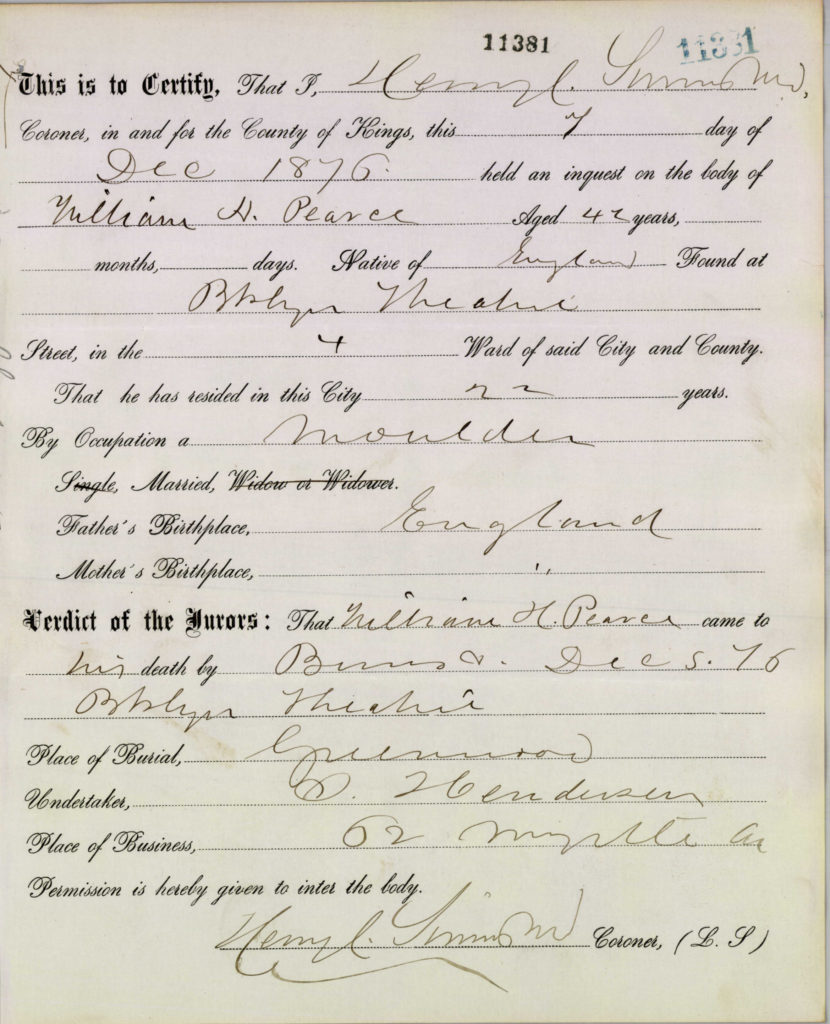 11381 11381
This is to Certify, That I, Henry C. Simms MD,
Coroner, in and for the County of Kings, this 7 day of
Dec 1876. held an inquest on the body of
William H. Pearce Aged 42 years,
months, days. Native of England Found at
Bklyn Theatre
Street, in the 4 Ward of said City and County.
That he has resided in this City 22 years.
By Occupation a Moulder
Single, Married, Widow or Widower.
Father's Birthplace, England
Mother's Birthplace, "
Verdict of the Jurors: That William H. Pearce came to
his death by Burns &. Dec 5. 76
Bklyn Theatre
Place of Burial, Greenwood
Undertaker, Hendersen
Place of Business, 62 Myrtle Av
Permission is hereby given to inter the body.
Henry C. Simms MD Coroner, (L. S)